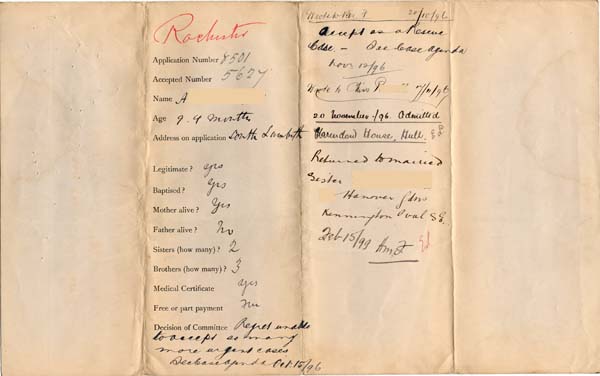 Rochester
Application Number 8501
Accepted Number 5627
Name A
Age 9.9 Months
Address on application South Lambeth
Legitimate? Yes
Baptised? Yes
Mother alive? Yes
Father alive? No
Sisters (how many)? 2
Brothers (how many)? 3
Medical Certificate Yes
Free or part payment
Decision of Committee Regret unable
to accept so many
more urgent cases
See Case agenda Oct 15/96
Wrote to P 20/10/96
Accept as a Reserve
Case. - See Case Agenda
Nov 10/96
Wrote to Miss P
20 November/96 Admitted
House, Hull.
Returned to married
Sister
Hanover Gdns
Kennington Oval S.E.
Feb 15/99